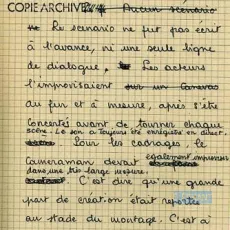 COPIE ARCHIVES Aucun scénario
Le scénario ne fut pas écrit
à l'avance, ni une seule ligne
de dialogue. Les acteurs
l'improvisaient sur un canevas
au fur et à mesure, après s'être
concertés avant de tourner chaque
scène. Le son a toujours été enregistré en direct.
Pour les cadrages, le
Caméraman devait également improviser
dans une très large mesure.
C'est dire qu'une grande
part de création était reportée
au stade du montage. C'est à